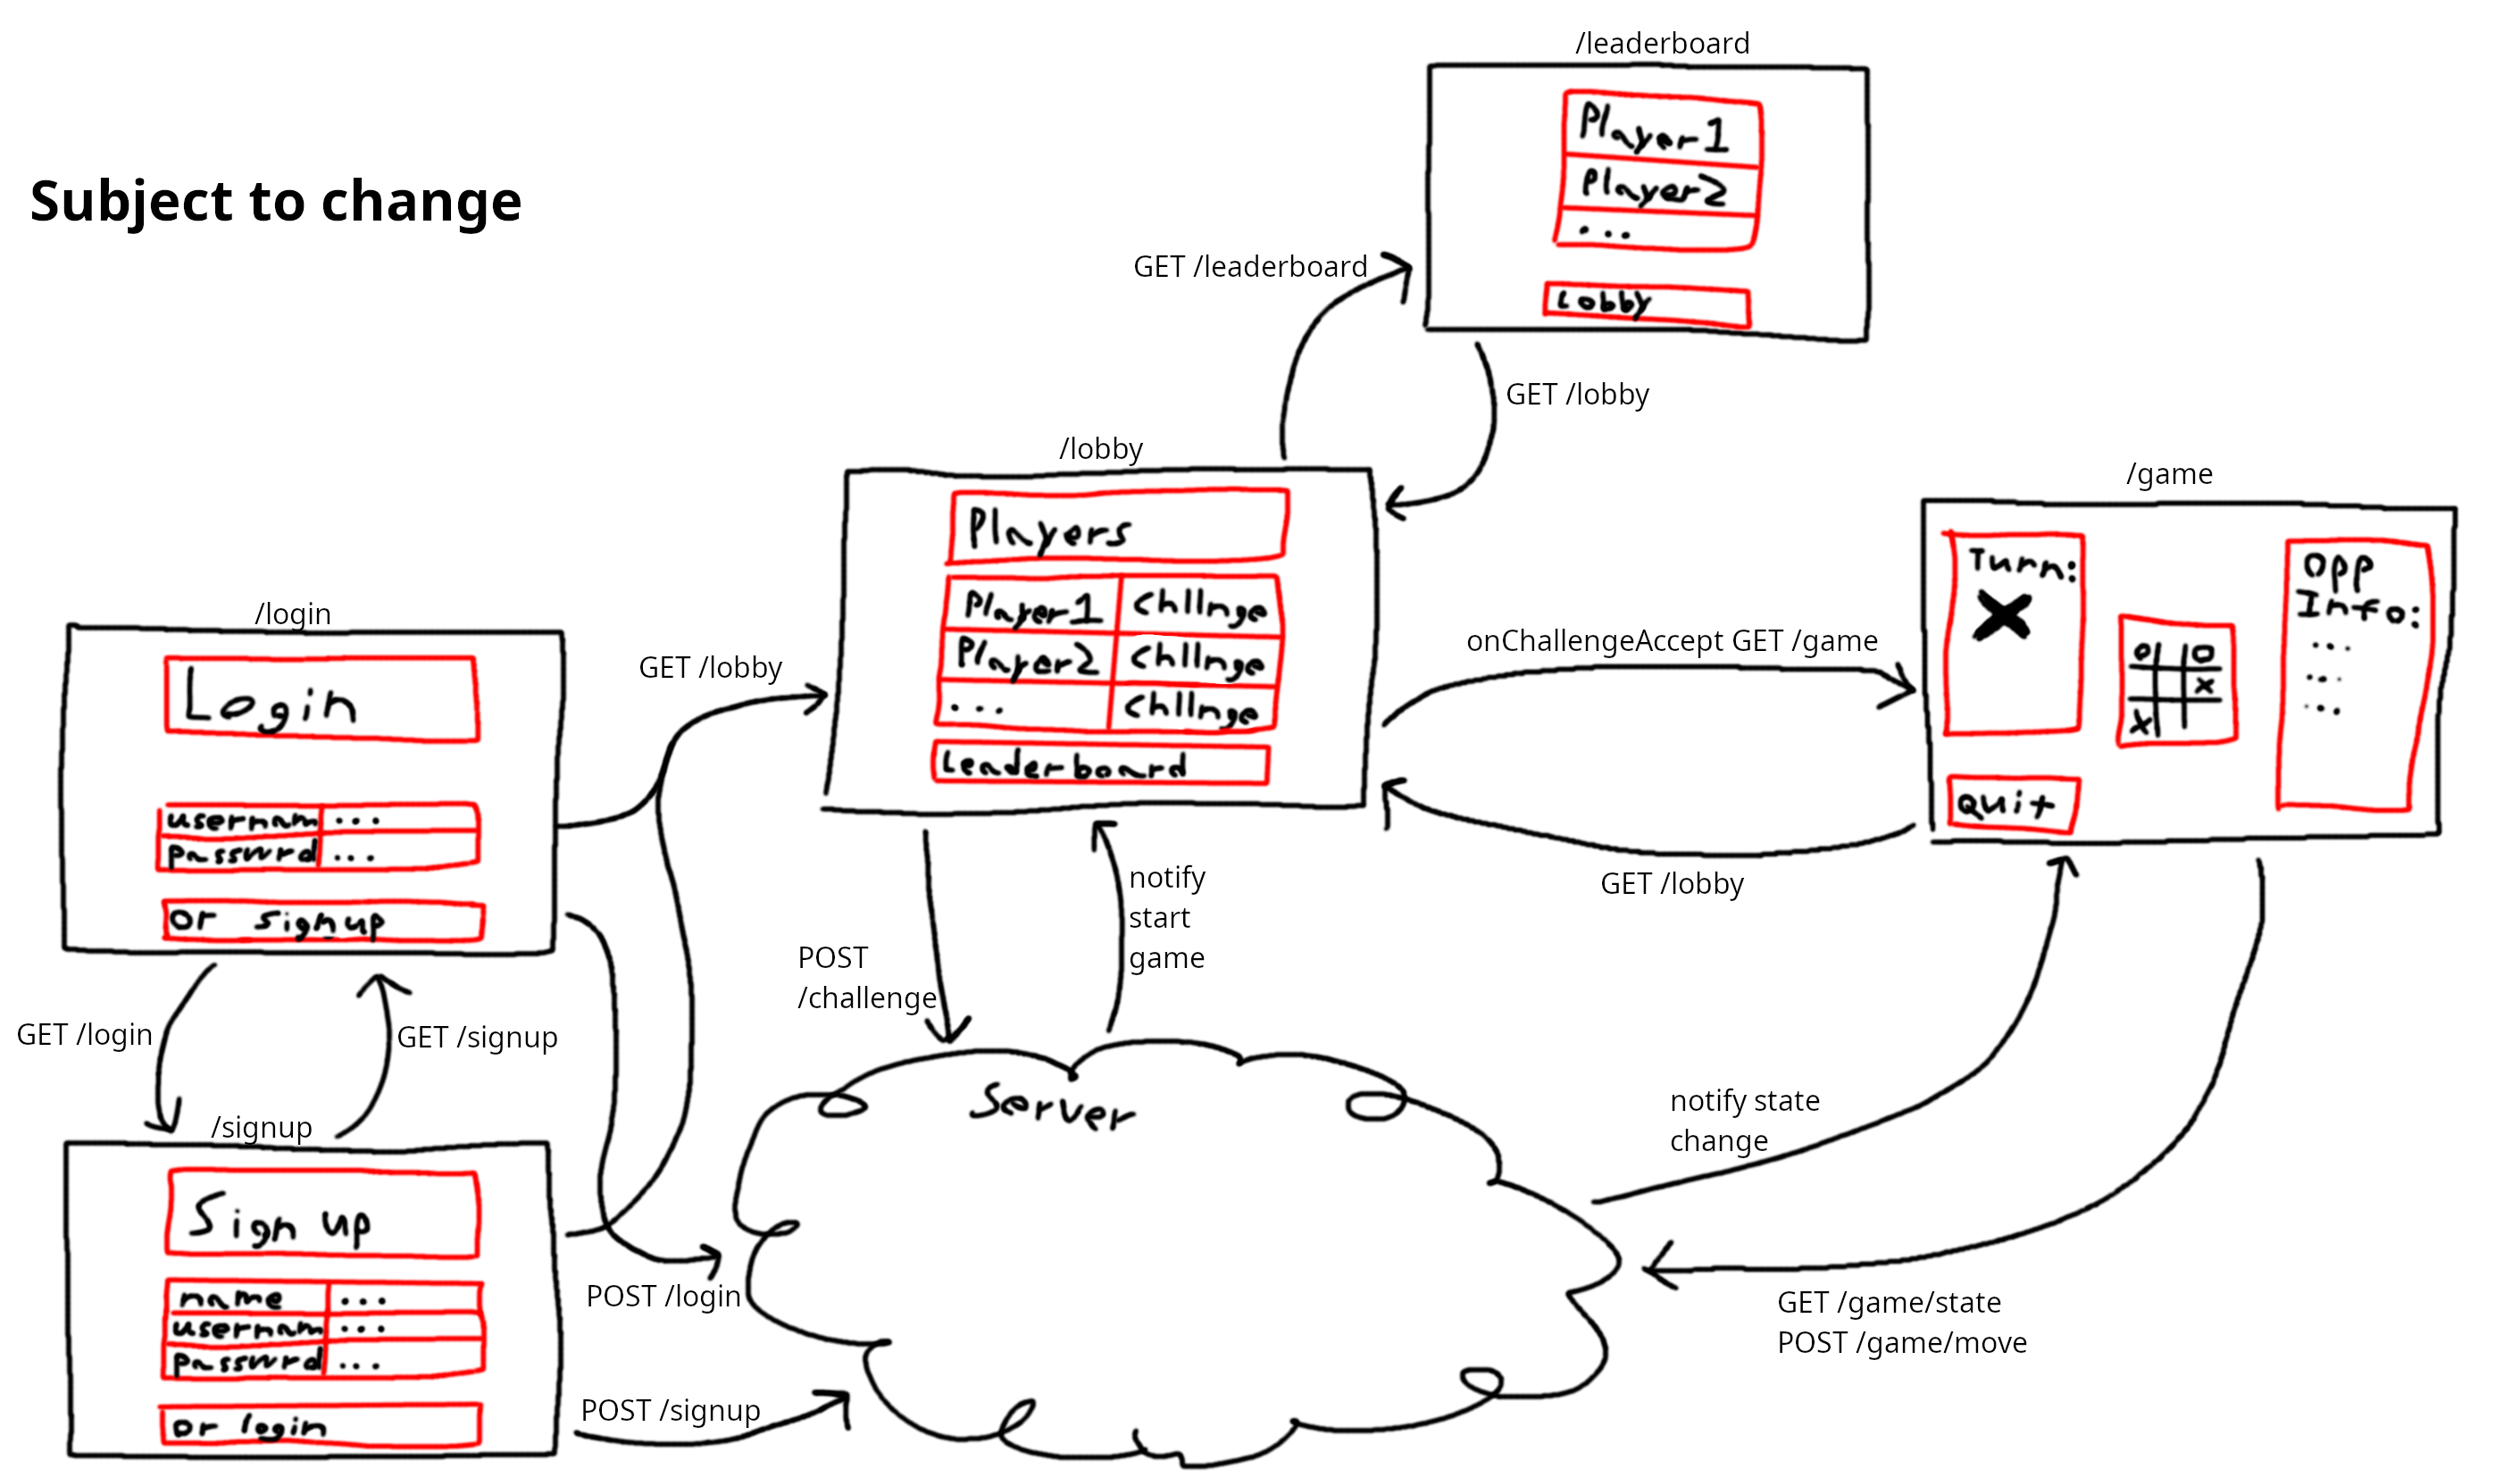 Subject to change
/leaderboard
Player1
Player2
...
Lobby
GET /leaderboard
GET /lobby
/lobby
Players
Player1 Chllnge
Player2 Chllnge
... Chllnge
Leaderboard
/game
Turn:
X
Opp
Info:
...
...
...
O O
X
X
Quit
onChallengeAccept GET /game
GET /lobby
/login
Login
usernam ...
passwrd ...
or signup
GET /lobby
GET /login
GET /signup
/signup
Sign up
name ...
usernam ...
passwrd ...
or login
POST /login
POST /signup
POST
/challenge
notify
start
game
Server
notify state
change
GET /game/state
POST /game/move